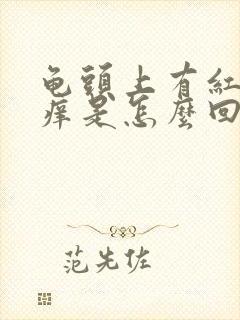 龟頭上有紅
痒是怎麼回
范先佐